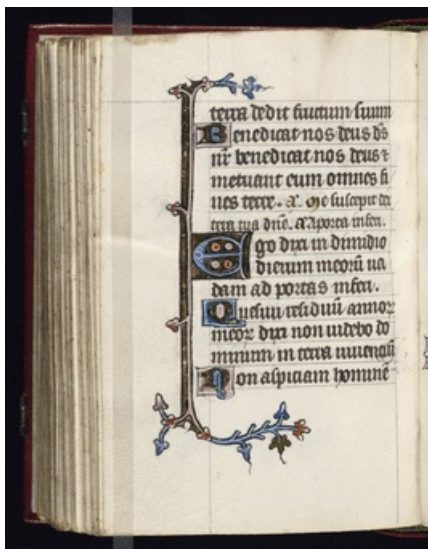 terra dedit fructum suum
Benedicat nos deus ds
nr̄ benedicat nos deus ⁊
metuant eum omnes fi
nes terre. A. Me suscepit dex
tera tua dn̄e. A. A porta inferi.
Ego dixi in dimidio
dierum meorū ua
dam ad portas inferi.
Quesiui residuū annoꝝ
meoꝝ dixi non uidebo do
minum in terra uiuenciū
Non aspiciam hominē